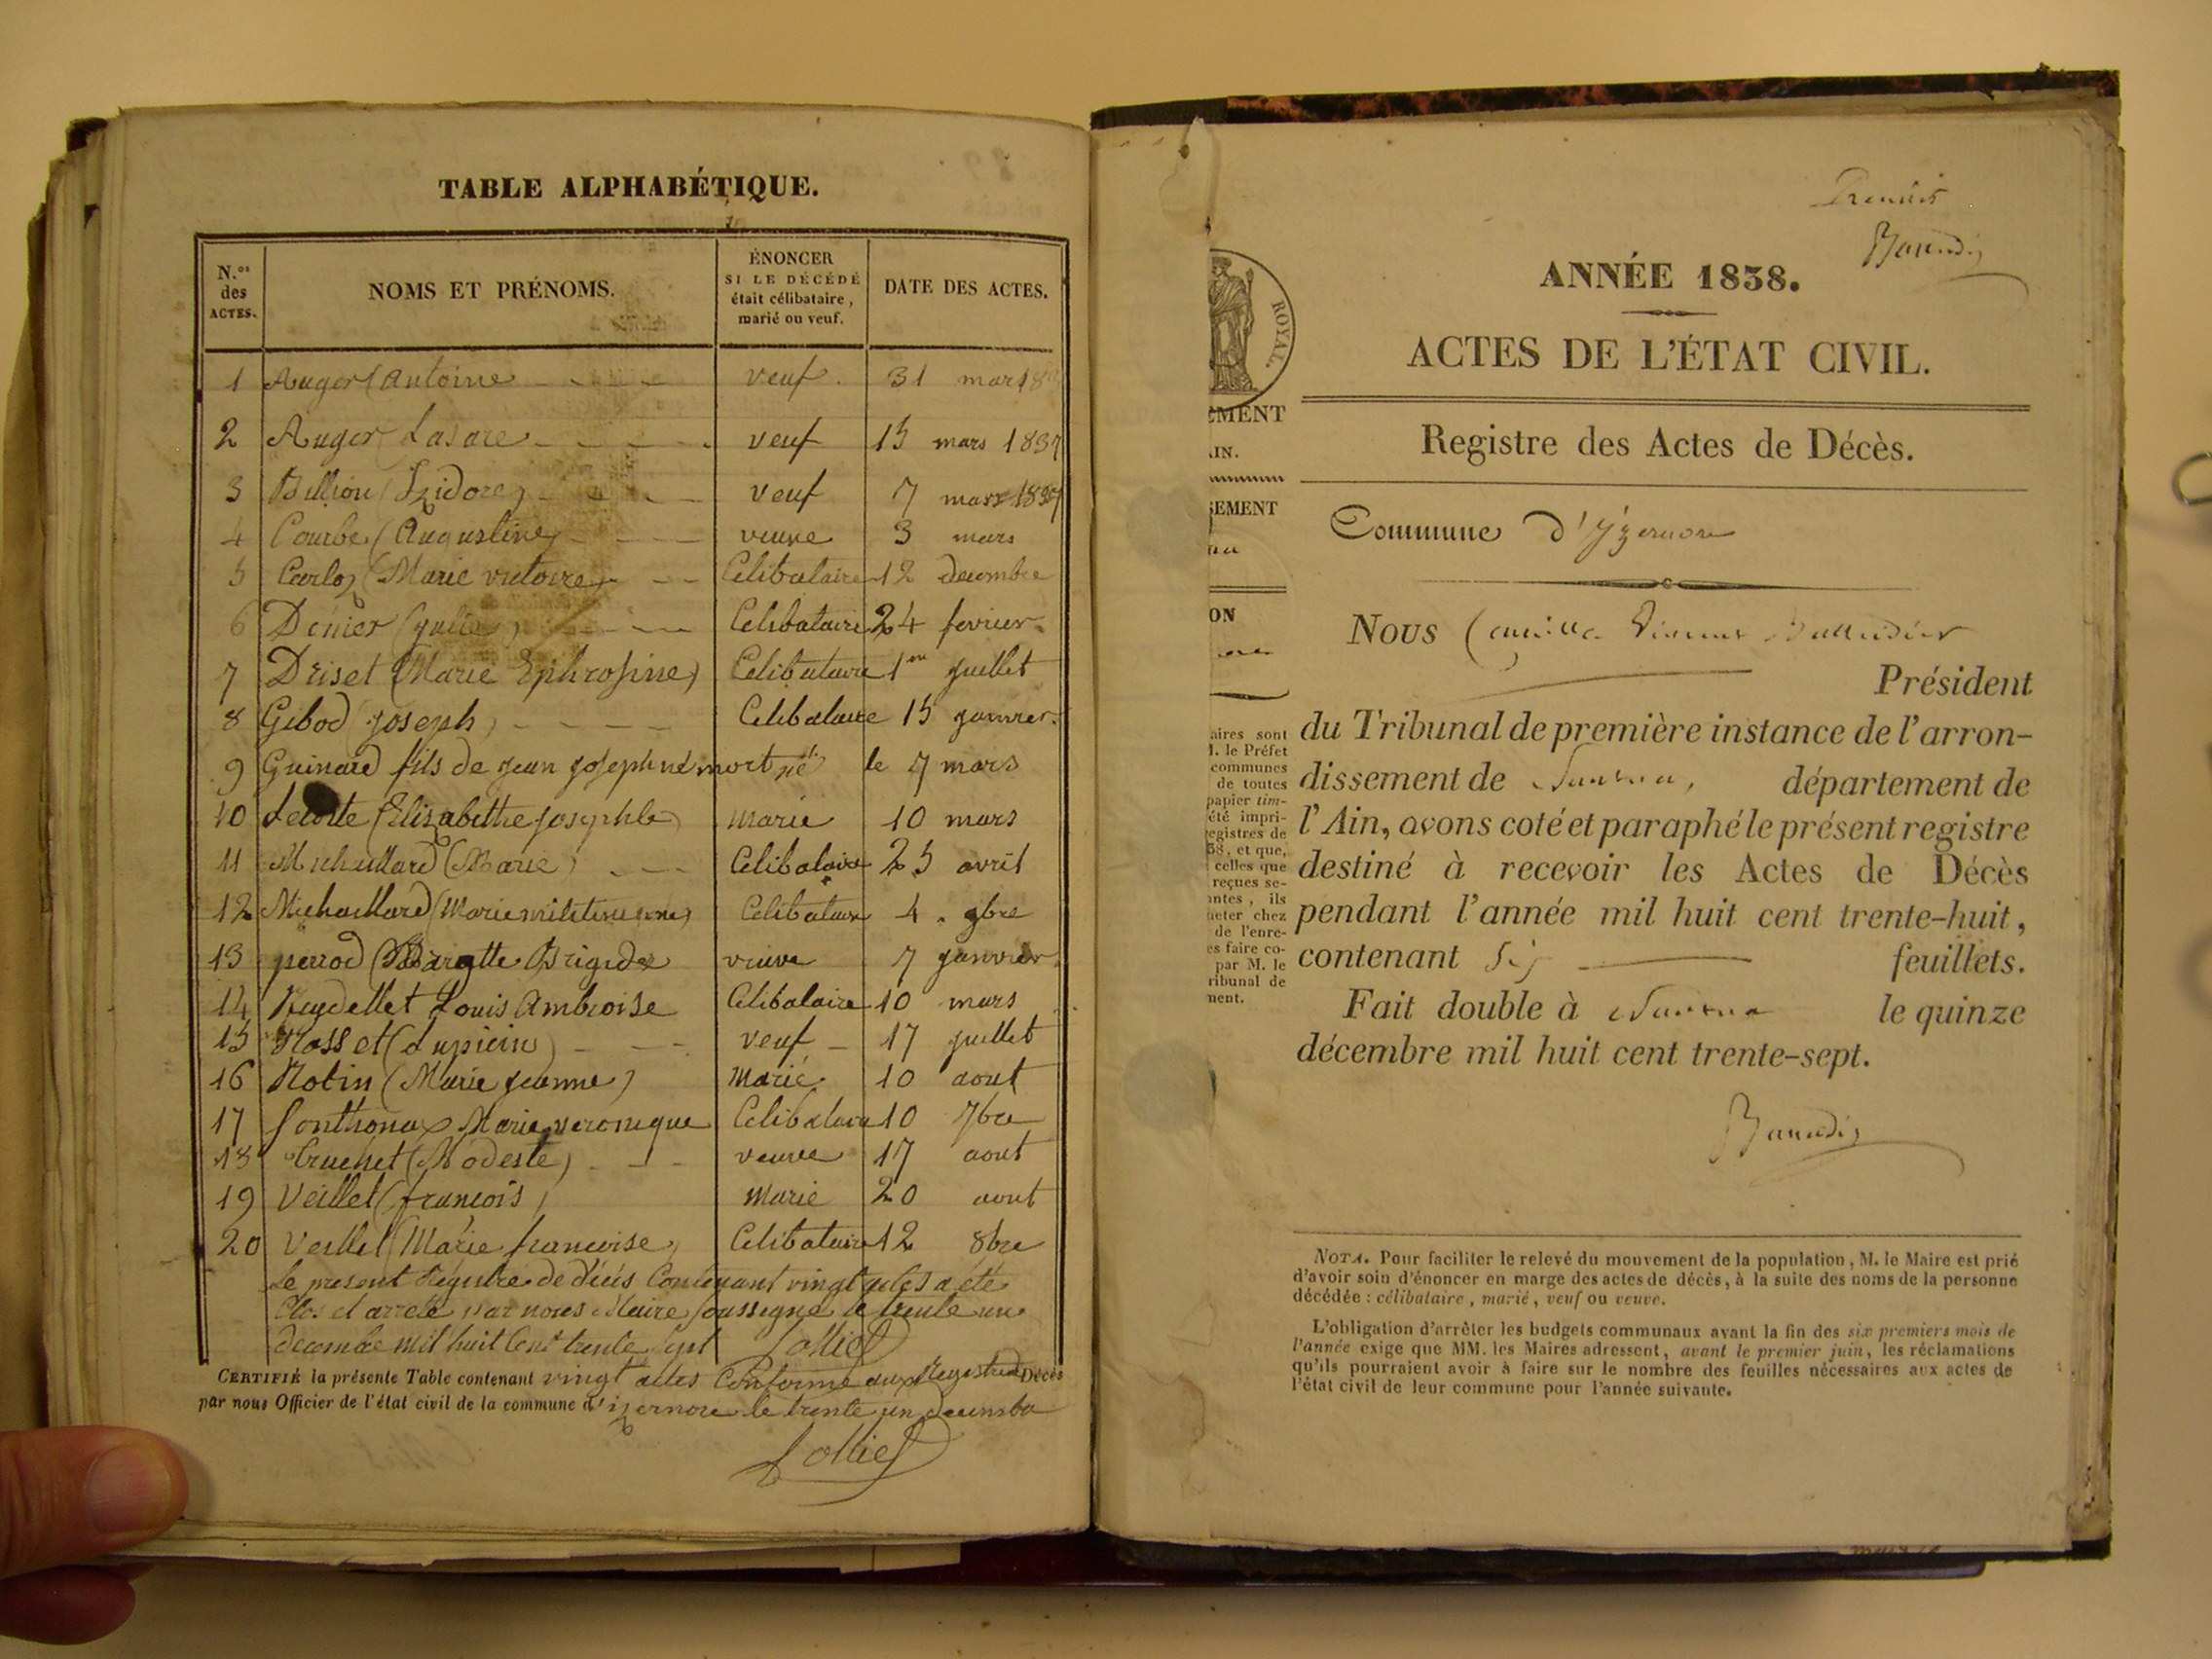 TABLE ALPHABÉTIQUE.
N.os des ACTES.
NOMS ET PRÉNOMS.
ÉNONCER
SI LE DÉCÉDÉ
était célibataire,
marié ou veuf.
DATE DES ACTES.
1 Auger (Antoine veuf 31 mars
2 Auger Lasare veuf 15 mars 1837
3 Billion (Izidore) veuf 7 mars 1837
4 Courbe (Augustine) veuve 3 mars
5 Carloz (Marie victoire) Célibataire 12 decembre
6 Denier (julie) Celibataire 24 fevrier
7 Driset (Marie Ephrosine) Celibataire 1er juillet
8 Gibod joseph) Celibataire 15 janvier
9 Guinard fils de jean joseph né mort né le 7 mars
10 Lecoste (Elizabethe josephte) marié 10 mars
11 Michaillard (Marie) Celibataire 25 avril
12 Michaillard (Marie Celibataire 4 9bre
13 perrod (Brigide veuve 7 janvier
14 Reydellet Louis Ambroise Celibataire 10 mars
15 Rosset (Lupicin) veuf 17 juillet
16 Rotin (Marie jeanne) Marié 10 aout
17 Sonthonax Marie veronique Celibataire 10 7bre
18 Truchet (Modeste) veuve 17 aout
19 Veillet (françois) Marié 20 aout
20 Veillet (Marie francoise) Celibataire 12 8bre
Le present Régistre de décés Contenant vingt actes a été
Clos et arreté par nous Maire soussigné le trente un
decembre mil huit Cent trente sept Jolliet
CERTIFIÉ la présente Table contenant vingt actes Conforme aux Registres Décès
par nous Officier de l'état civil de la commune d'izernore le trente un decembre
Jolliet
Premier
ANNÉE 1838.
ACTES DE L'ÉTAT CIVIL.
ROYAL.
EMENT
Registre des Actes de Décès.
IN.
EMENT
Commune d'Yzernore
ON
Nous Camille
Président
du Tribunal de première instance de l'arron-
dissement de Nantua, département de
l'Ain, avons coté et paraphé le présent registre
destiné à recevoir les Actes de Décès
pendant l'année mil huit cent trente-huit,
contenant six feuillets.
Fait double à Nantua le quinze
décembre mil huit cent trente-sept.
aires sont
M. le Préfet
communes
de toutes
papier tim-
été impri-
egistres de
38, et que,
celles que
reçues se-
ntes, ils
heter chez
de l'enre-
es faire co-
par M. le
ribunal de
ment.
NOTA. Pour faciliter le relevé du mouvement de la population, M. le Maire est prié
d'avoir soin d'énoncer en marge des actes de décès, à la suite des noms de la personne
décédée : célibataire, marié, veuf ou veuve.
L'obligation d'arrêter les budgets communaux avant la fin des six premiers mois de
l'année exige que MM. les Maires adressent, avant le premier juin, les réclamations
qu'ils pourraient avoir à faire sur le nombre des feuilles nécessaires aux actes de
l'état civil de leur commune pour l'année suivante.